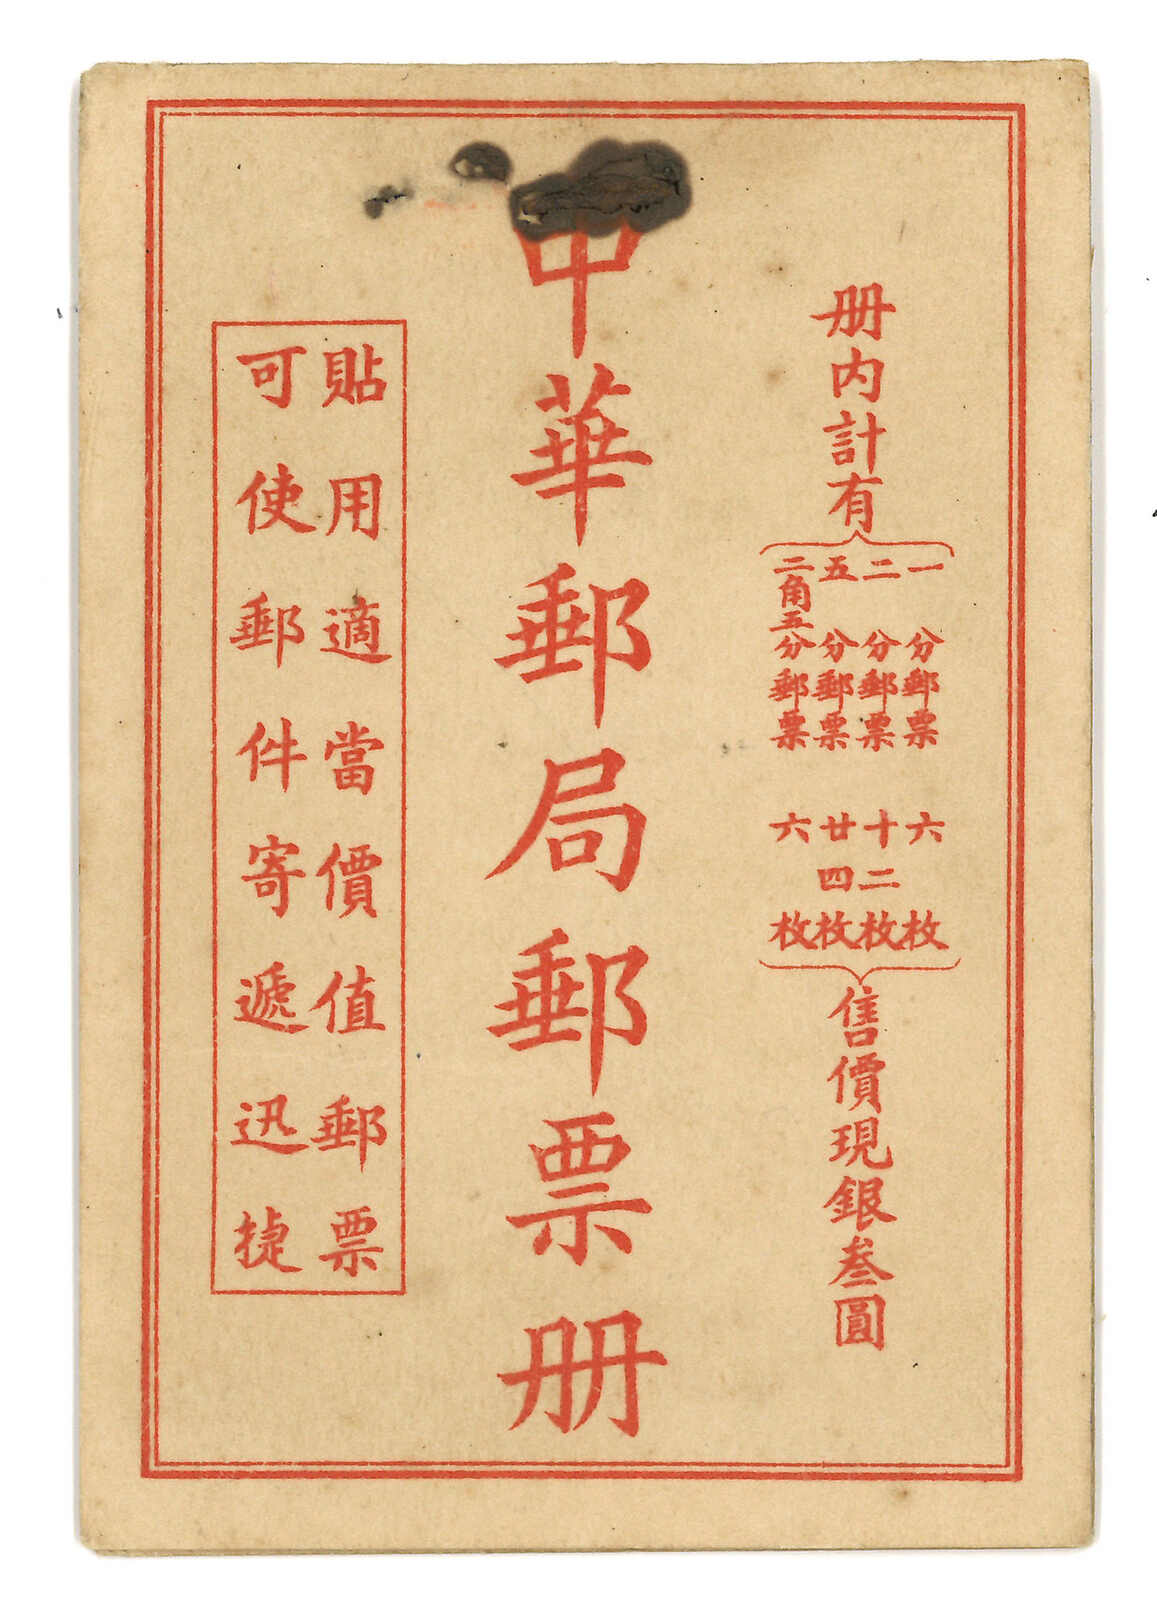 册内計有
一分郵票 六枚
二分郵票 十二枚
五分郵票 廿四枚
二角五分郵票 六枚
售價現銀叁圓
中華郵局郵票册
貼用適當價值郵票
可使郵件寄遞迅捷